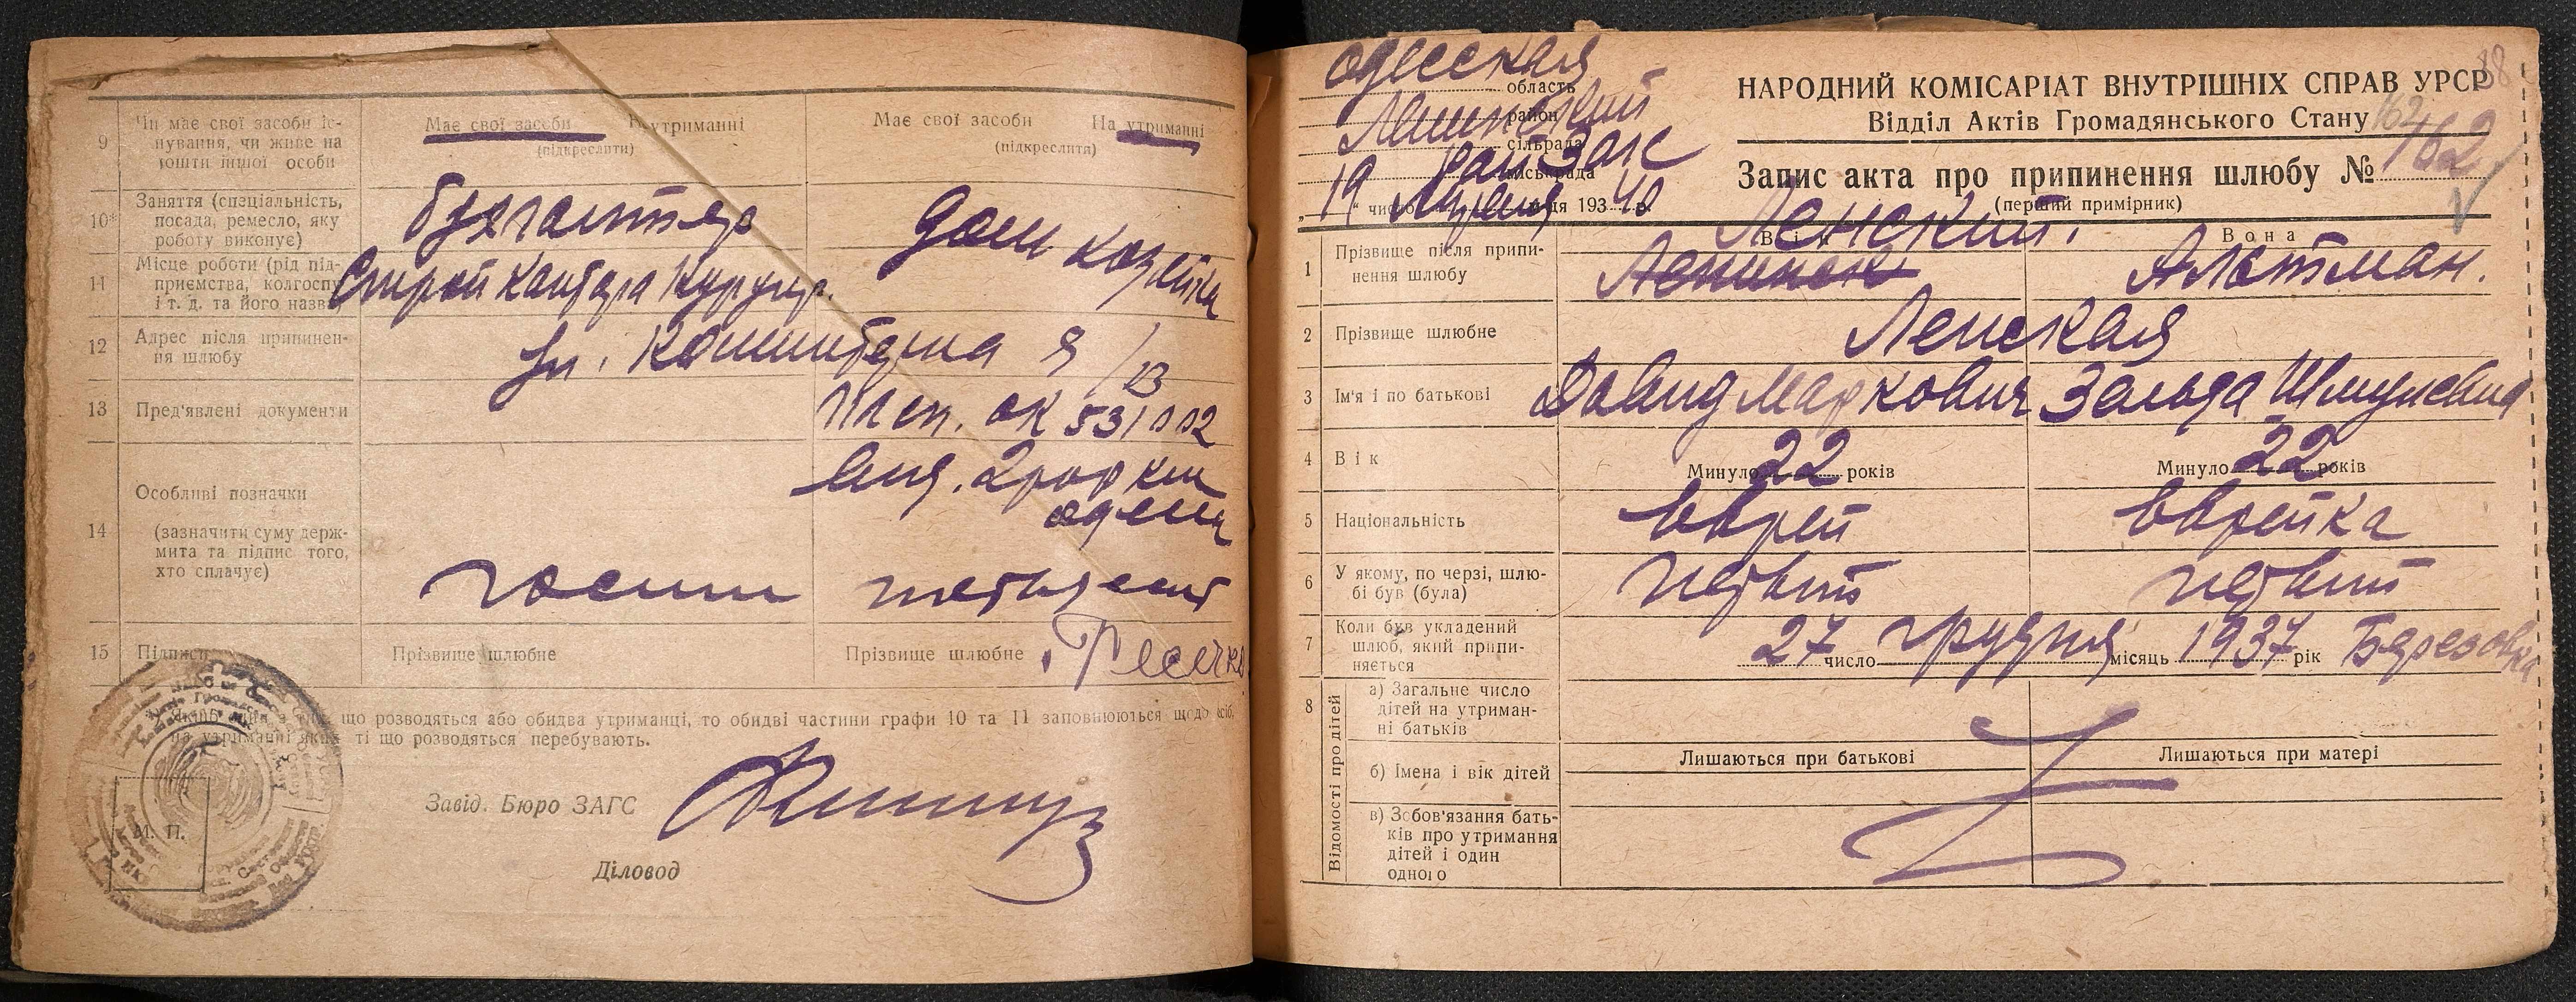 9 Чи має свої засоби іс-
нування, чи живе на
кошти іншої особи
Має свої засоби
утриманні
(підкреслити)
Має свої засоби На утриманні
(підкреслити)
10* Заняття (спеціальність,
посада, ремесло, яку
роботу виконує)
бухгалтер
дом хозяйка
11 Місце роботи (рід під-
приємства, колгоспу
і т. д. та його назва)
12 Адрес після припинен-
ня шлюбу
ул. Коминтерна 9/13
13 Пред'явлені документи
14 Особливі позначки
(зазначити суму держ-
мита та підпис того,
хто сплачує)
госпош пятьдесят
15 Підписи
Прізвище шлюбне
Прізвище шлюбне
що розводяться або обидва утриманці, то обидві частини графи 10 та 11 заповнюються щодо осіб,
на утриманні яких ті що розводяться перебувають.
М. П.
Завід. Бюро ЗАГС
Діловод
одесская
область
Ленинский
район
сільрада
рай Загс
міськрада
19 число Апреля місяця 1940 р.
88
НАРОДНИЙ КОМІСАРІАТ ВНУТРІШНІХ СПРАВ УРСР
Відділ Актів Громадянського Стану 162
Запис акта про припинення шлюбу № 162
(перший примірник)
Він Вона
1 Прізвище після припи-
нення шлюбу
Ленский.
Альтман.
2 Прізвище шлюбне
Ленская
3 Ім'я і по батькові
Давид Маркович
Зельда Шмулевна
4 Вік
Минуло 22 років
Минуло 22 років
5 Національність
еврей
еврейка
6 У якому, по черзі, шлю-
бі був (була)
первый
первый
7 Коли був укладений
шлюб, який припи-
няється
27 число грудня місяць 1937 рік Березовка
8 Відомості про дітей
а) Загальне число
дітей на утриман-
ні батьків
б) Імена і вік дітей
Лишаються при батькові
Лишаються при матері
в) Зобов'язання бать-
ків про утримання
дітей і один
одного